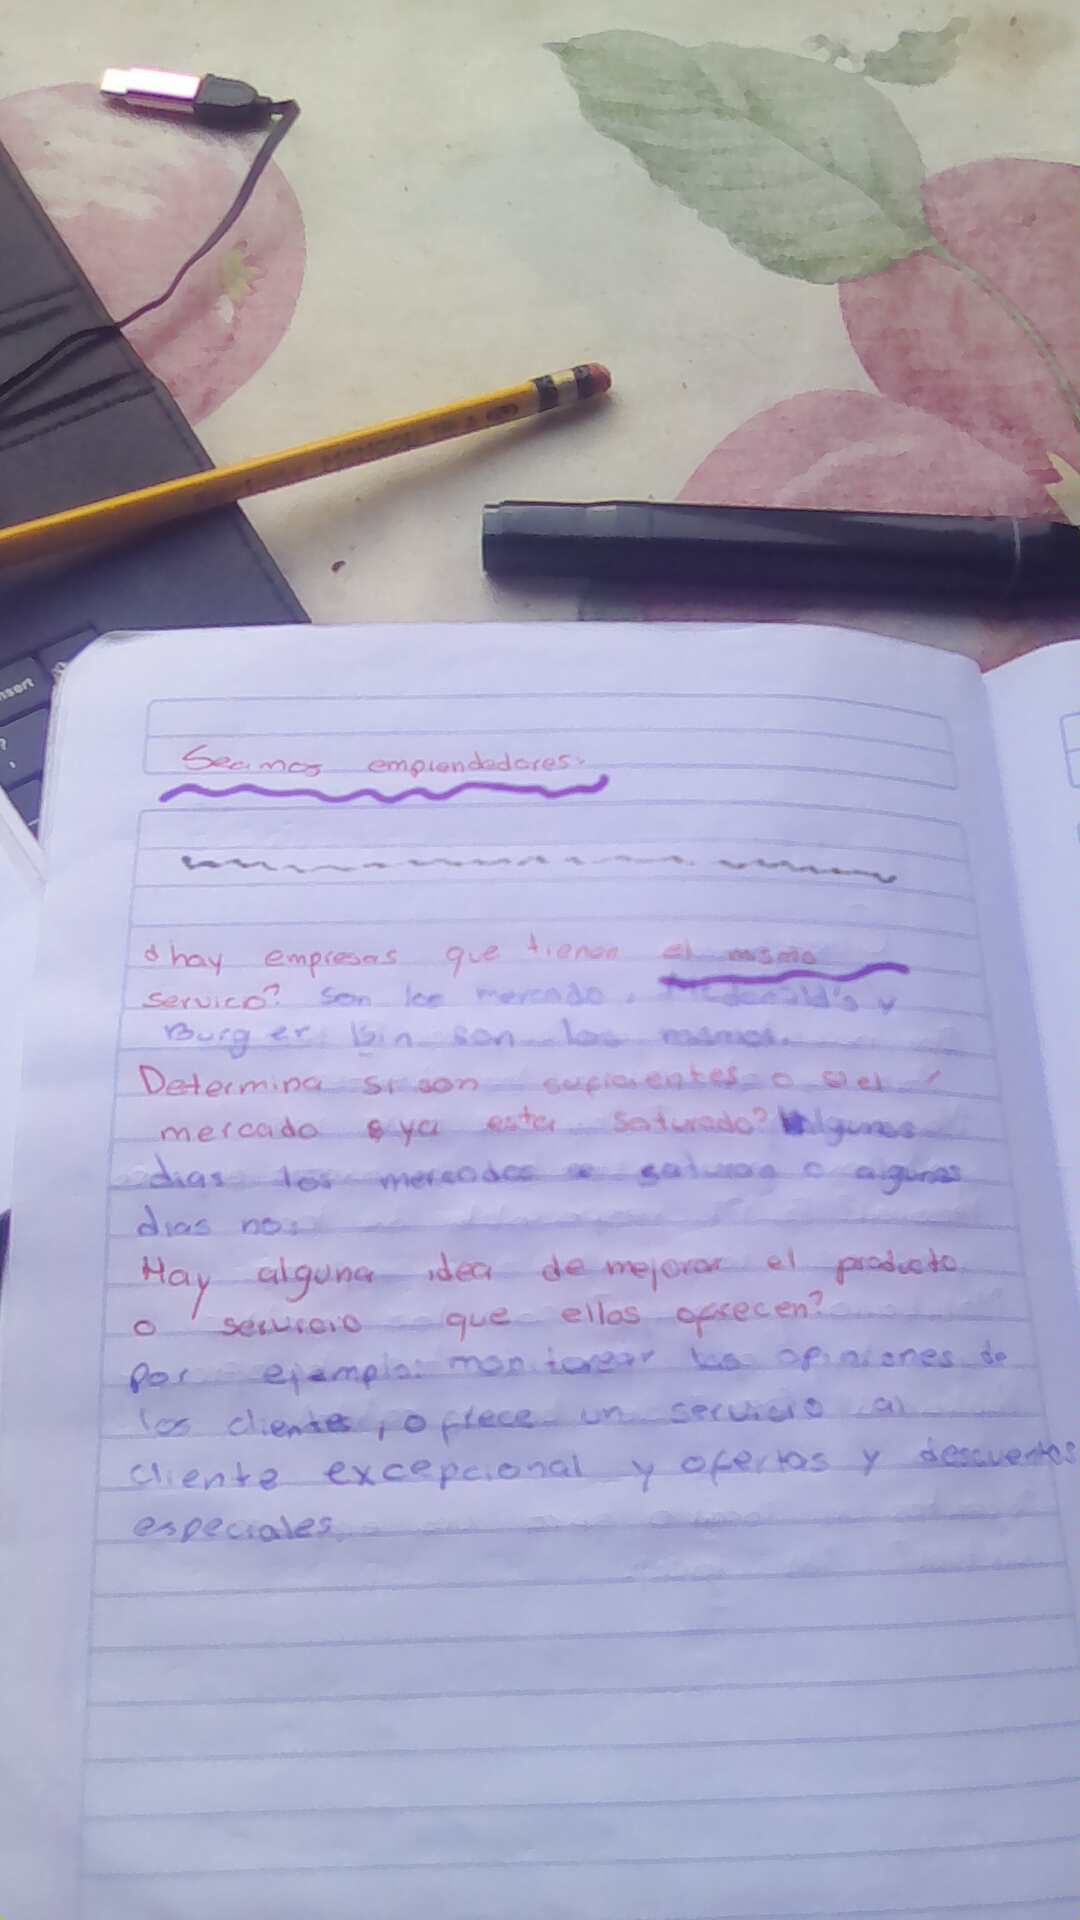 Seamos emprendedores.
¿hay empresas que tienen el mismo
servico? son los mercado. Mcdonald's y
Burger Bin son los mismos.
Determina si son suficientes o si el
mercado ya esta saturado? Algunos
dias los mercados se saturan o algunos
dias no.
Hay alguna idea de mejorar el producto
o servicio que ellos ofrecen?
Por ejemplo: monitorear las opiniones de
los clientes, ofrece un servicio al
cliente excepcional y ofertas y descuentos
especiales
MONGOL
Insert